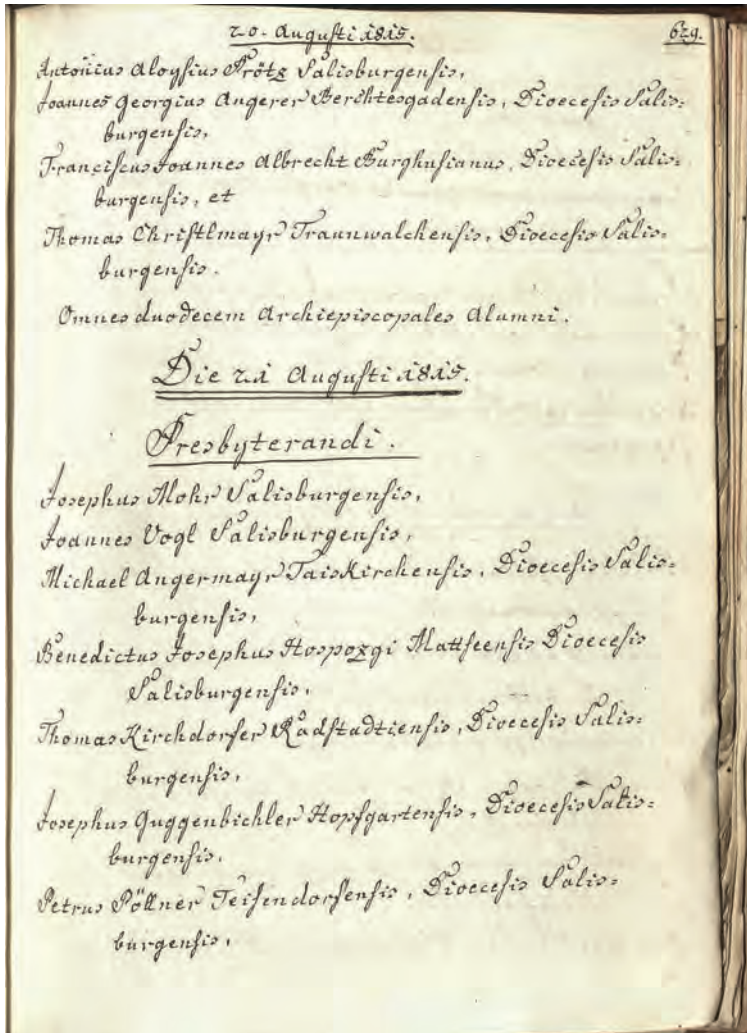 20. Augusti 1815.
629.
Antonius Aloysius Prötz Salisburgensis,
Joannes Georgius Angerer Berchtesgadensis, Dioecesis Salis=
burgensis,
Franciscus Joannes Albrecht Burghusianus, Dioecesis Salis=
burgensis, et
Thomas Christlmayr Traunwalchensis, Dioecesis Salis=
burgensis.
Omnes duodecem Archiepiscopales Alumni.
Die 21 Augusti 1815.
Presbyterandi.
Josephus Mohr Salisburgensis,
Joannes Vogl Salisburgensis,
Michael Angermayr Taiskirchensis, Dioecesis Salis=
burgensis,
Benedictus Josephus Hospozgi Mattseensis Dioecesis
Salisburgensis,
Thomas Kirchdorfer Radstadtiensis, Dioecesis Salis=
burgensis,
Josephus Guggenbichler Hopfgartensis, Dioecesis Salis=
burgensis,
Petrus Pöllner Teisendorfensis, Dioecesis Salis=
burgensis,